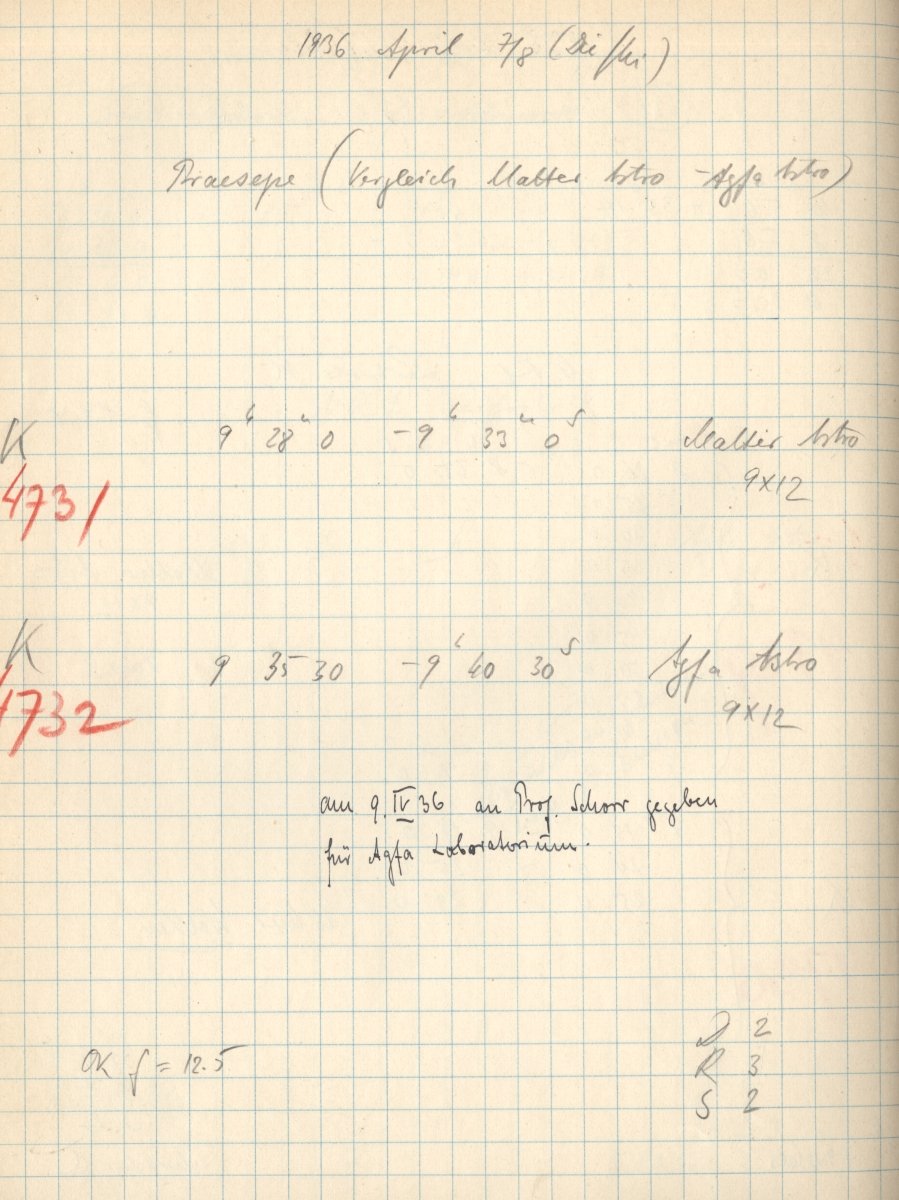 1936 April 7/8 (Di/Mi)
Praesepe (Vergleich Matter Astro - Agfa Astro)
K 9h 28m 0 - 9h 33m 0s Matter Astro
4731 9x12
K 9 35 30 - 9h 40 30s Agfa Astro
4732 9x12
am 9. IV 36 an Prof. Schorr gegeben
für Agfa Laboratorium.
D 2
OK f = 12.5 R 3
S 2